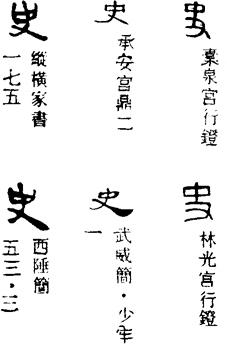 史
橐泉宮行鐙
史
承安宮鼎二
史
縱橫家書
一七五
史
林光宮行鐙
史
武威簡·少牢
一
史
西陲簡
五三·三